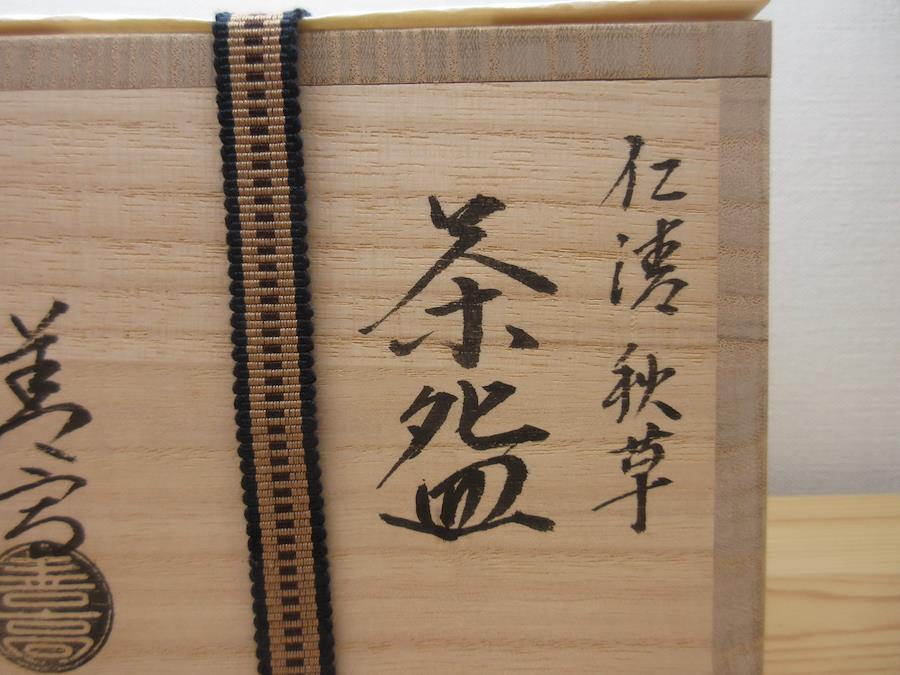 仁清 秋草
茶盌